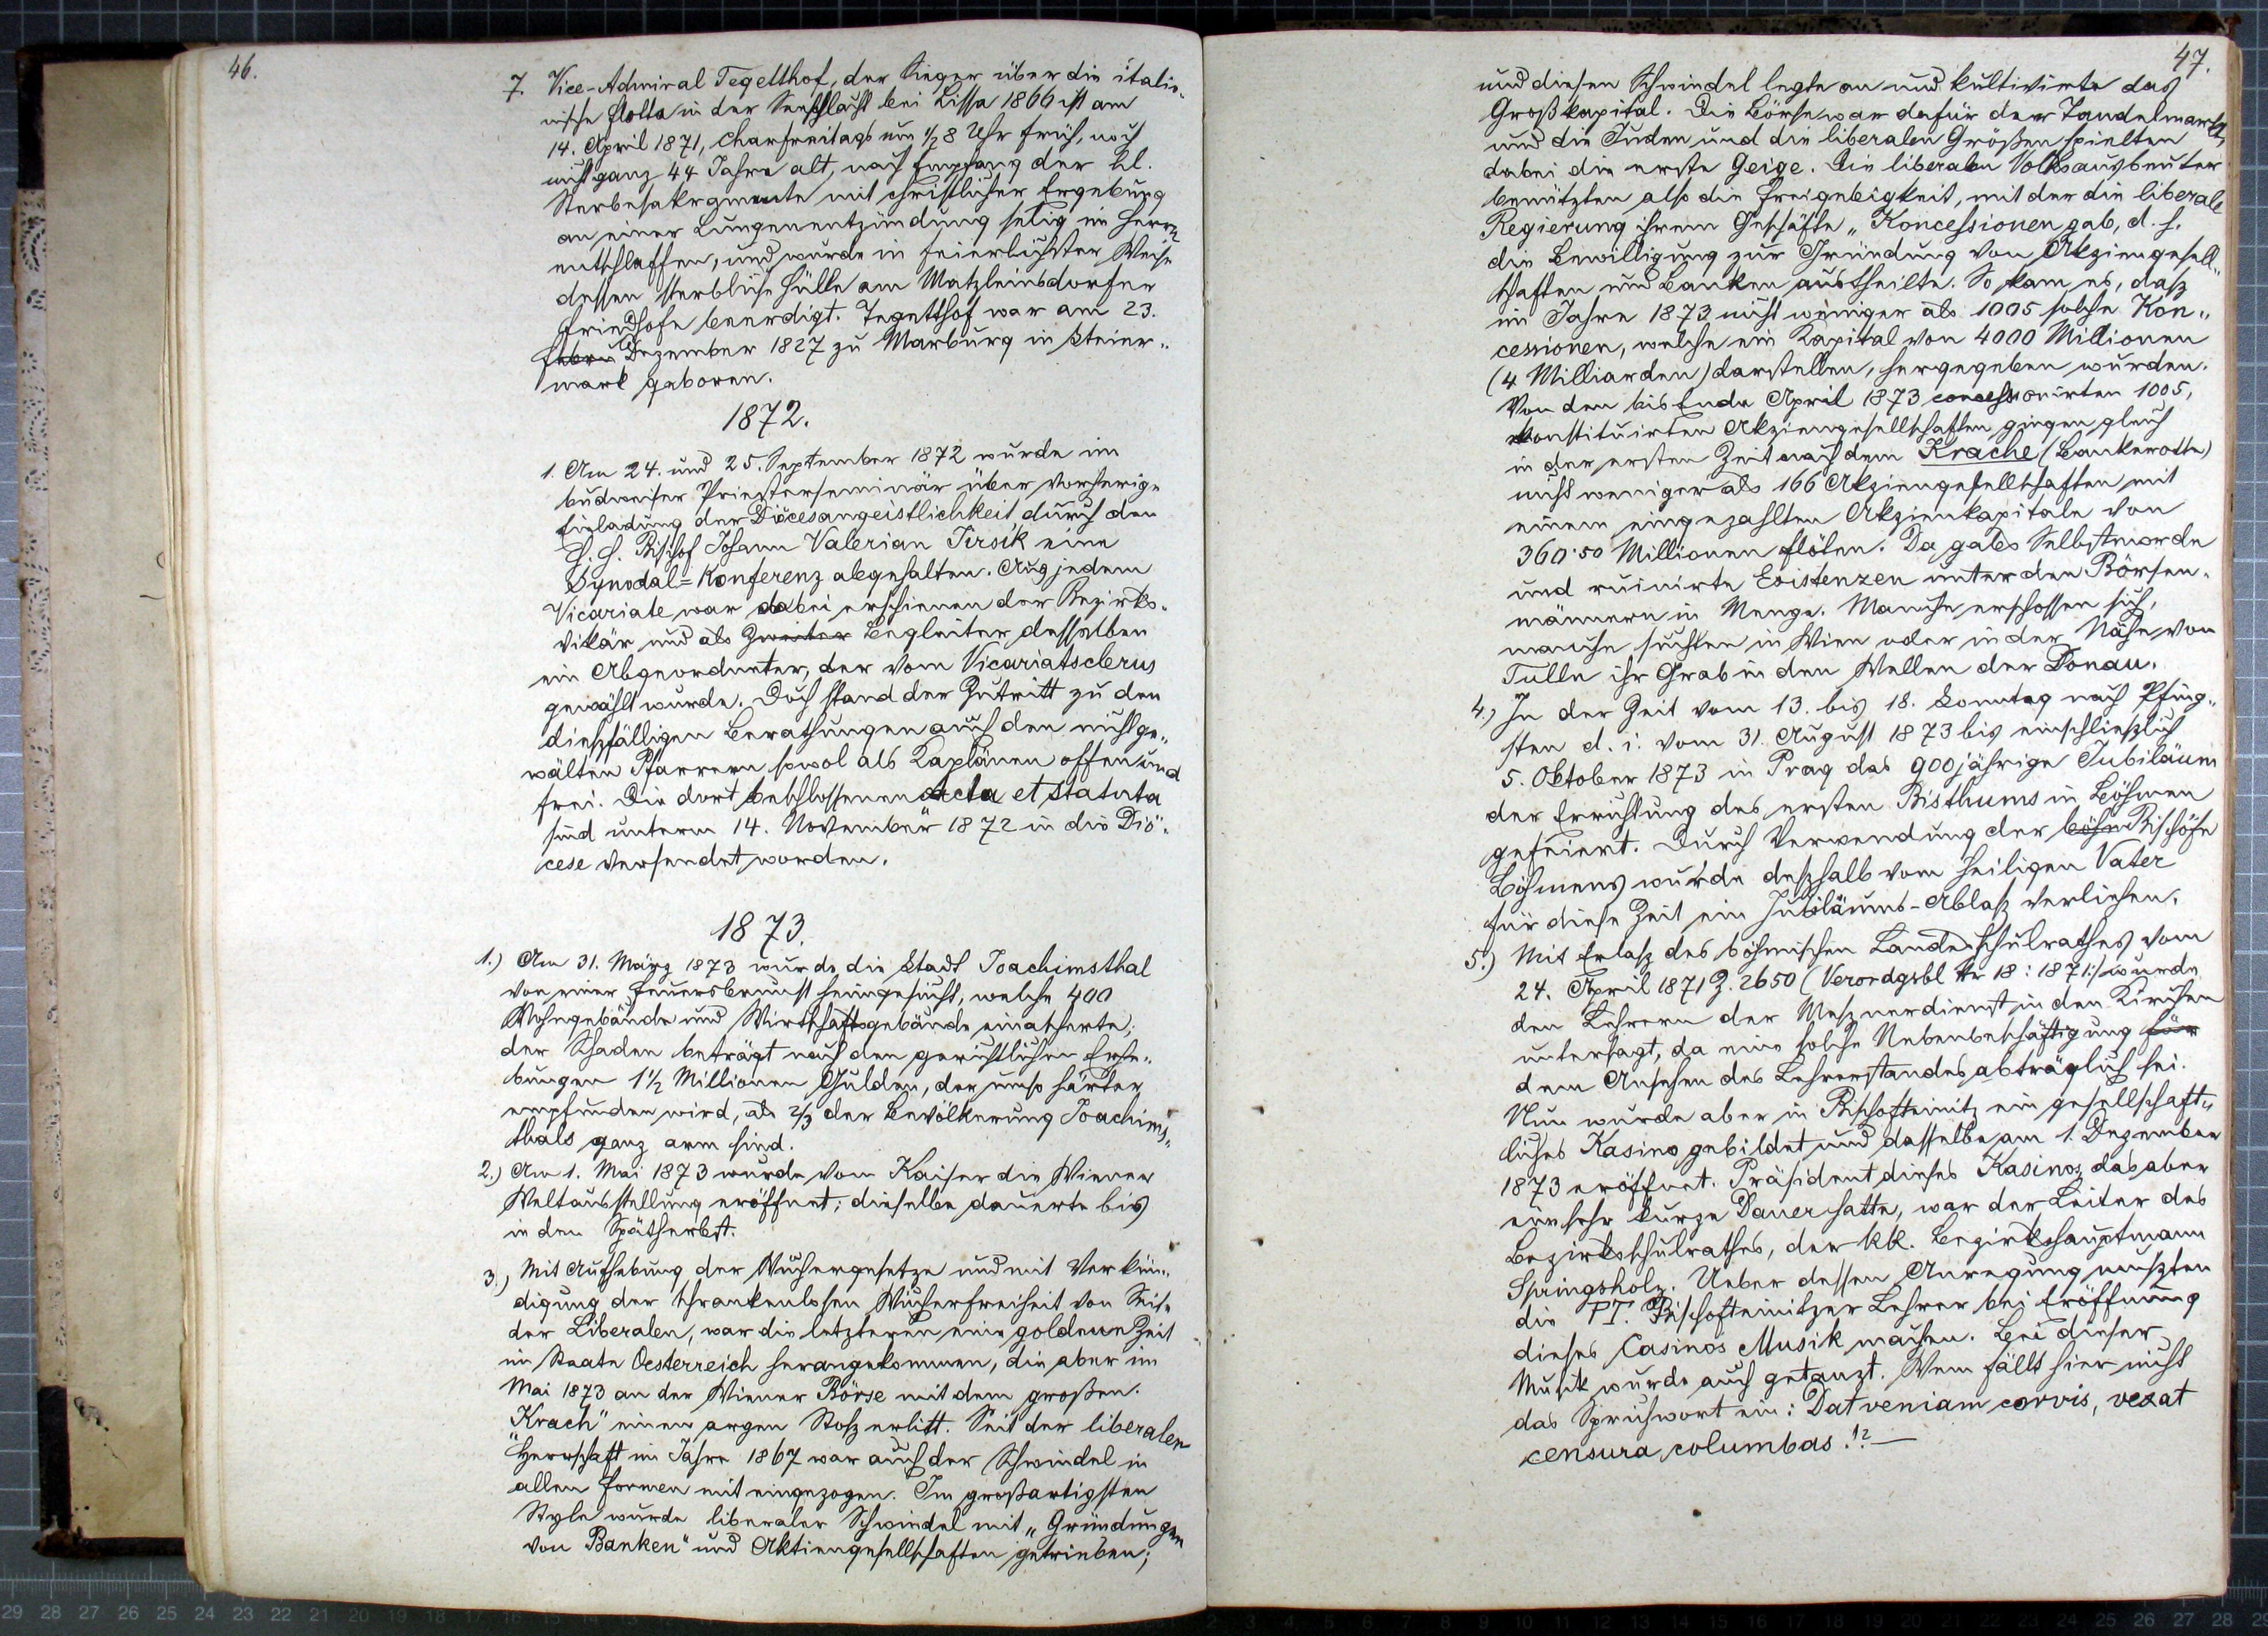 46.
7. Vice-Admiral Tegetthof, der Sieger über die italie-
nische Flotte in der Seeschlacht bei Lissa 1866 ist am
14. April 1871, Charfreitags um 1/2 8 Uhr früh, noch
nicht ganz 44 Jahre alt, nach Empfang der hl.
Sterbesakramente mit christlicher Ergebung
an einer Lungenentzündung selig im Herrn
entschlaffen, und wurde in feierlichster Weise
dessen sterbliche Hülle am Matzleinsdorfer
Friedhofe beerdigt. Tegetthof war am 23.
Febru Dezember 1827 zu Marburg in Steier-
mark geboren.
1872.
1. Am 24. und 25. September 1872 wurde im
budweiser Priesterseminär über vorherige
Einladung der Diöcesangeistlichkeit durch den
H. H. Bischof Johann Valerian Jirsik eine
Synodal=Konferenz abgehalten. Aus jedem
Vicariate war dabei erschienen der Bezirks-
vikär und als Zweiter Begleiter desselben
ein Abgeordneter, der vom Vicariatsclerus
gewählt wurde. Doch stand der Zutritt zu den
dießfälligen Berathungen auch den nichtge-
wälten Pfarrern sowol als Kaplänen offen und
frei. Die dort beschlossenen Acta et Statuta
sind unterm 14. November 1872 in die Diö-
cese versendet worden.
1873.
1.) Am 31. März 1873 wurde die Stadt Joachimsthal
von einer Feuersbrunst heimgesucht, welche 400
Wohngebäude und Wirthschaftsgebäude einäscherte;
der Schaden beträgt nach den gerichtlichen Erhe-
bungen 1 1/2 Millionen Gulden, der umso härter
empfunden wird, als 2/3 der Bevölkerung Joachims-
thals ganz arm sind.
2.) Am 1. Mai 1873 wurde vom Kaiser die Wiener
Weltausstellung eröffnet; dieselbe dauerte bis
in den Spätherbst.
3.) Mit Aufhebung der Wuchergesetze und mit Verkün-
digung der schrankenlosen Wucherfreiheit von Seite
der Liberalen, war die letzteren eine goldene Zeit
im Staate Oesterreich herangekommen, die aber im
Mai 1873 an der Wiener Börse mit dem großen
"Krach" einen argen Stoß erlitt. Seit der liberalen
Herrschaft im Jahre 1867 war auch der Schwindel in
allen Formen mit eingezogen. Im großartigsten
Style wurde liberaler Schwindel mit „Gründungen
von Banken" und Aktiengesellschaften getrieben;
47.
und diesen Schwindel legte an und kultivirte das
Großkapital. Die Börse war dafür der Tandelmarkt,
und die Juden und die liberalen Größen spielten
dabei die erste Geige. Die liberalen Volksausbeuter
benützten also die Freigebigkeit, mit der die liberale
Regierung ihrem Geschäfte „Koncessionen gab, d. h.
die Bewilligung zur Gründung von Akziengesell-
schaften und Banken austheilte. So kam es, daß
im Jahre 1873 nicht weniger als 1005 solche Kon-
cessionen, welche ein Kapital von 4000 Millionen
(4 Milliarden) darstellen, hergegeben wurden.
Von den bis Ende April 1873 concessionirten 1005,
konstituirten Akziengesellschaften gingen gleich
in der ersten Zeit nach dem Krache (Bankerotte)
nicht weniger als 166 Akziengesellschaften mit
einem eingezahlten Akzienkapitale von
360·50 Millionen flöten. Da gabs Selbstmorde
und ruinirte Existenzen unter den Börsen-
männern in Menge. Manche erschossen sich,
manche suchten in Wien oder in der Nähe von
Tulln ihr Grab in den Wellen der Donau.
4.) In der Zeit vom 13. bis 18. Sonntag nach Pfing-
sten d. i. vom 31. August 1873 bis einschließlich
5. Oktober 1873 in Prag das 900jährige Jubiläum
der Errichtung des ersten Bisthums in Böhmen
gefeiert. Durch Verwendung der böhm Bischöfe
Böhmens wurde deßhalb vom heiligen Vater
für diese Zeit ein Jubiläums-Ablaß verliehen.
5.) Mit Erlaß des böhmischen Landesschulrathes vom
24. April 1871 Z. 2650 (Verordgsbl Nr 18: 1871:) wurde
den Lehrern der Meßnerdienst in den Kirchen
untersagt, da eine solche Nebenbeschäftigung für
dem Ansehen des Lehrerstandes abträglich sei.
Nun wurde aber in Bischofteinitz ein gesellschaft-
liches Kasino gebildet und dasselbe am 1. Dezember
1873 eröffnet. Präsident dieses Kasinos, das aber
eine sehr kurze Dauer hatte, war der Leiter des
Bezirksschulrathes, der kk. Bezirkshauptmann
Springsholz. Ueber dessen Anregung mußten
die PT. Bischofteinitzer Lehrer bei Eröffnung
dieses Casinos Musik machen. Bei dieser
Musik wurde auch getanzt. Wem fällt hier nicht
das Sprichwort ein: Dat veniam corvis, vexat
censura columbas!? —